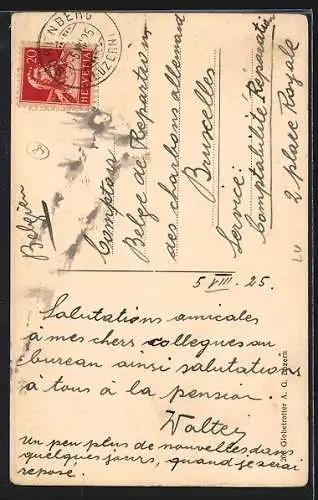 NBERG
25
LUZERN
20
HELVETIA
Belgien
Comptoir
Belge de Répartition
des charbons allemand
Bruxelles
Service:
Comptabilité Réparation
2 place Royale
LU
5 VIII. 25.
Salutations amicales
à mes chers collegues au
bureau ainsi salutations
à tous à la pension.
Walter
Un peu plus de nouvelles dans
quelques jours, quand je serai
reposé.
Globetrotter A. G. Luzern